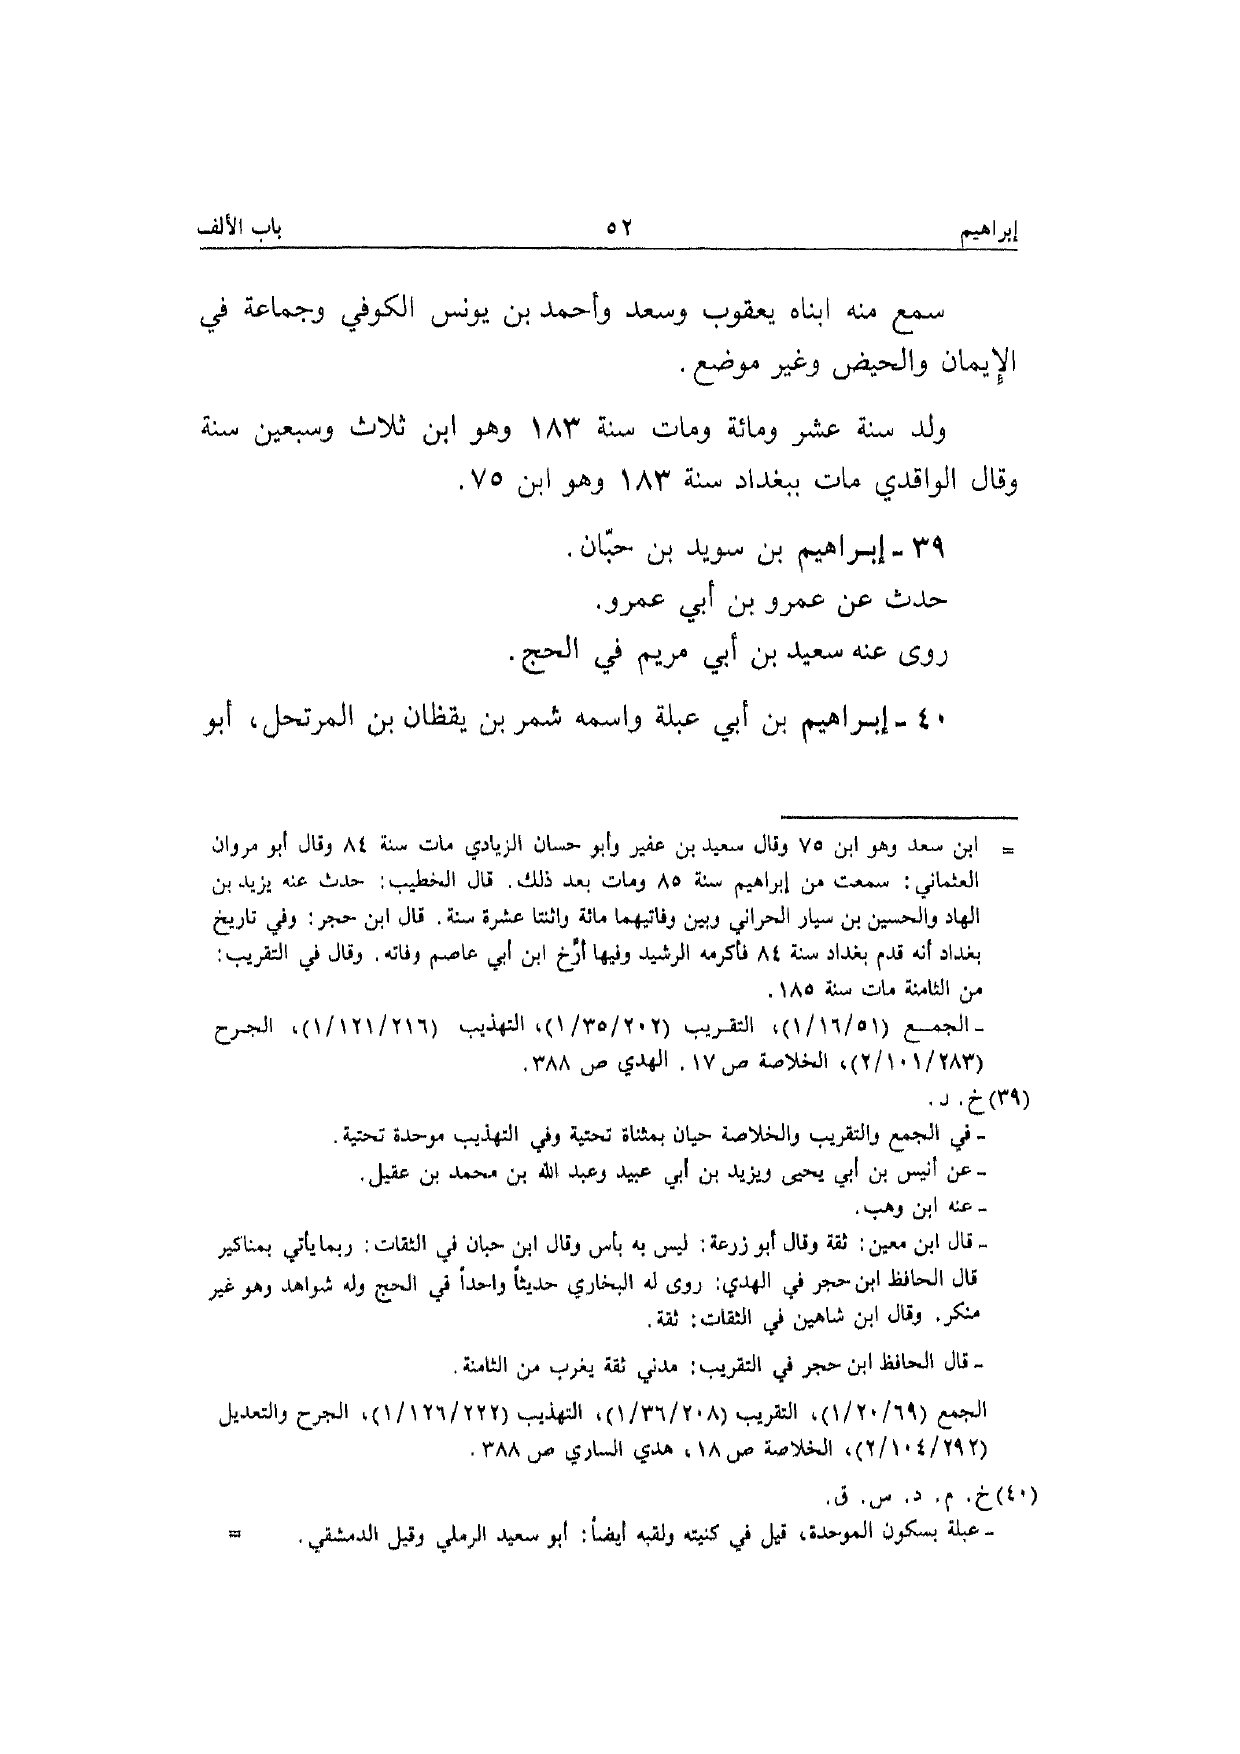 إبراهيم ٥٢ باب الألف
سمع منه ابناه يعقوب وسعد وأحمد بن يونس الكوفي وجماعة في
الإيمان والحيض وغير موضع.
ولد سنة عشر ومائة ومات سنة ١٨٣ وهو ابن ثلاث وسبعين سنة
وقال الواقدي مات ببغداد سنة ١٨٣ وهو ابن ٧٥.
٣٩ - إبراهيم بن سويد بن حبّان.
حدث عن عمرو بن أبي عمرو.
روى عنه سعيد بن أبي مريم في الحج.
٤٠ - إبراهيم بن أبي عبلة واسمه شمر بن يقظان بن المرتحل، أبو
= ابن سعد وهو ابن ٧٥ وقال سعيد بن عفير وأبو حسان الزيادي مات سنة ٨٤ وقال أبو مروان
العثماني: سمعت من إبراهيم سنة ٨٥ ومات بعد ذلك. قال الخطيب: حدث عنه يزيد بن
الهاد والحسين بن سيار الحراني وبين وفاتيهما مائة واثنتا عشرة سنة. قال ابن حجر: وفي تاريخ
بغداد أنه قدم بغداد سنة ٨٤ فأكرمه الرشيد وفيها أرّخ ابن أبي عاصم وفاته. وقال في التقريب:
من الثامنة مات سنة ١٨٥.
- الجمع (١/١٦/٥١)، التقريب (١/٣٥/٢٠٢)، التهذيب (١/١٢١/٢١٦)، الجرح
(٢/١٠١/٢٨٣)، الخلاصة ص ١٧. الهدي ص ٣٨٨.
(٣٩) خ. د.
- في الجمع والتقريب والخلاصة حيان بمثناة تحتية وفي التهذيب موحدة تحتية.
- عن أنيس بن أبي يحيى ويزيد بن أبي عبيد وعبد الله بن محمد بن عقيل.
- عنه ابن وهب.
- قال ابن معين: ثقة وقال أبو زرعة: ليس به بأس وقال ابن حبان في الثقات: ربما يأتي بمناكير
قال الحافظ ابن حجر في الهدي: روى له البخاري حديثاً واحداً في الحج وله شواهد وهو غير
منكر. وقال ابن شاهين في الثقات: ثقة.
- قال الحافظ ابن حجر في التقريب: مدني ثقة يغرب من الثامنة.
الجمع (١/٢٠/٦٩)، التقريب (١/٣٦/٢٠٨)، التهذيب (١/١٢٦/٢٢٢)، الجرح والتعديل
(٢/١٠٤/٢٩٢)، الخلاصة ص ١٨، هدي الساري ص ٣٨٨.
(٤٠) خ. م. د. س. ق.
- عبلة بسكون الموحدة، قيل في كنيته ولقبه أيضاً: أبو سعيد الرملي وقيل الدمشقي. =